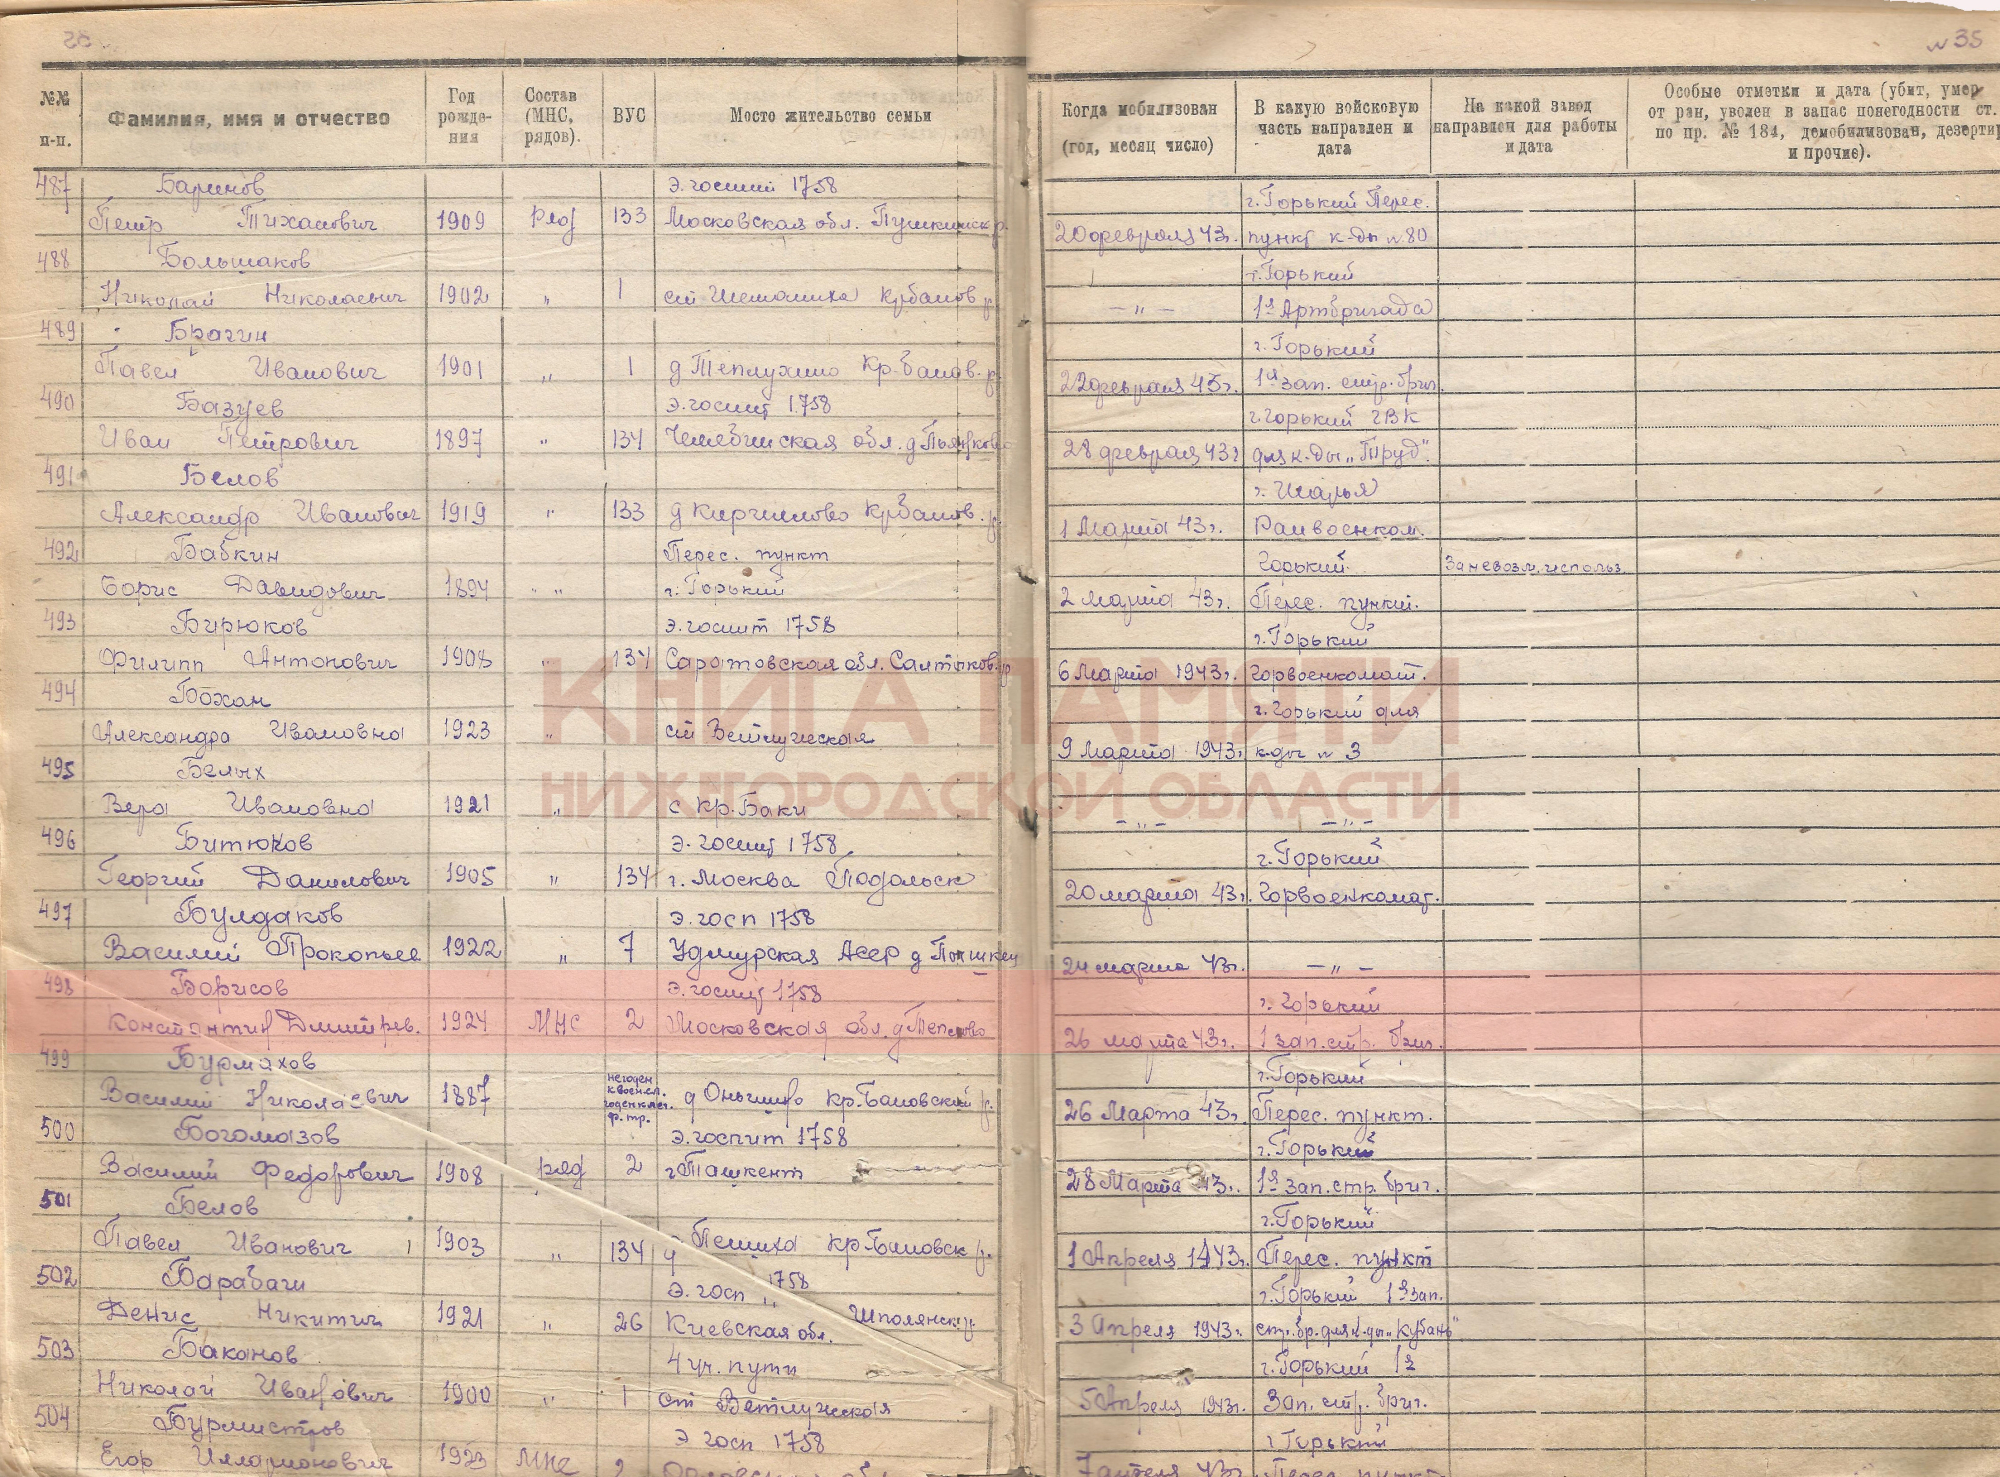 35
№ 35
№№ п-п.
Фамилия, имя и отчество
Год рожде-ния
Состав (МНС, рядов).
ВУС
Мосто жительство семьи
Когда мобилизован (год, месяц число)
В какую войсковую часть направлен и дата
На какой завод направлен для работы и дата
Особые отметки и дата (убит, умер от ран, уволен в запас понегодности ст. по пр. № 184, демобилизован, дезертир и прочие).
487 Баринов э.госпит 1758 г.Горький Перес.
Петр Тиханович 1909 Ряд 133 Московская обл. Пушкинск р. 20 февраля 43г. пункт к-ды №80
488 Большаков г.Горький
Николай Николаевич 1902 „ 1 ст Шеманиха Кр.баков р. — „ — 1я Артбригада
489 Брагин г.Горький
Павел Иванович 1901 „ 1 д Теплухино Кр.баков. р. 22 февраля 43г. 1я зап. стр. бриг.
490 Базуев э.госпит 1758 г.Горький ГВК
Иван Петрович 1897 „ 134 Челябинская обл. д 28 февраля 43г для к-ды „Труд".
491 Белов г. Шарья
Александр Иванович 1919 „ 133 д Кириллово Кр.Баков. р. 1 Марта 43г. Райвоенком.
492 Бабкин Перес. пункт Горький. Заневозм. использ.
Борис Давидович 1894 „ „ г. Горький 2 марта 43г. Перес. пункт.
493 Бирюков э.госпит 1758 г.Горький
Филипп Антонович 1908 „ 134 Саратовская обл. Салтыков. р 6 Марта 1943г. Горвоенкомат.
494 Бохан г.Горький для
Александра Ивановна 1923 „ ст Ветлужская 9 Марта 1943г. к-ды № 3
495 Белых
Вера Ивановна 1921 „ с Кр.Баки — „ — — „ —
496 Битюков э. госпит 1758 г.Горький
Георгий Данилович 1905 „ 134 г. Москва Подольск 20 марта 43г. Горвоенкомат.
497 Булдаков э.госп 1758
Василий Прокопьев 1922 „ 7 Удмурская Асср д 24 марта 43г. — „ —
498 Борисов э.госпит 1758 г. Горький
Константин Дмитрев. 1924 МНС 2 Московская обл. д Теплово 26 марта 43г. 1 зап. стр. бриг.
499 Бурмахов г.Горький
Василий Николаевич 1887 негоден к воен.сл. годен к лег. ф. тр. д Кр.Баковский р. 26 Марта 43г. Перес. пункт.
500 Богомазов э.госпит 1758 г.Горький
Василий Федорович 1908 ряд 2 г Ташкент 28 Марта 43г. 1я зап. стр. бриг.
501 Белов г.Горький
Павел Иванович 1903 „ 134 д Кр.Баковск р. 1 Апреля 1943г. Перес. пункт
502 Барабаги э. госп „ 1758 г.Горький 1я зап.
Денис Никитич 1921 „ 26 Киевская обл. Шполянск р. 3 Апреля 1943г. стр. бр. для к-ды „Кубань"
503 Баканов 4 уч. пути г.Горький 1я
Николай Иванович 1900 „ 1 ст Ветлужская 5 Апреля 1943г. Зап. стр. бриг.
504 Бурмистров э госп 1758 г Горький
Егор Илларионович 1923 МНС 2 7 апреля 43г. Перес. пункт
КНИГА ПАМЯТИ
НИЖЕГОРОДСКОЙ ОБЛАСТИ